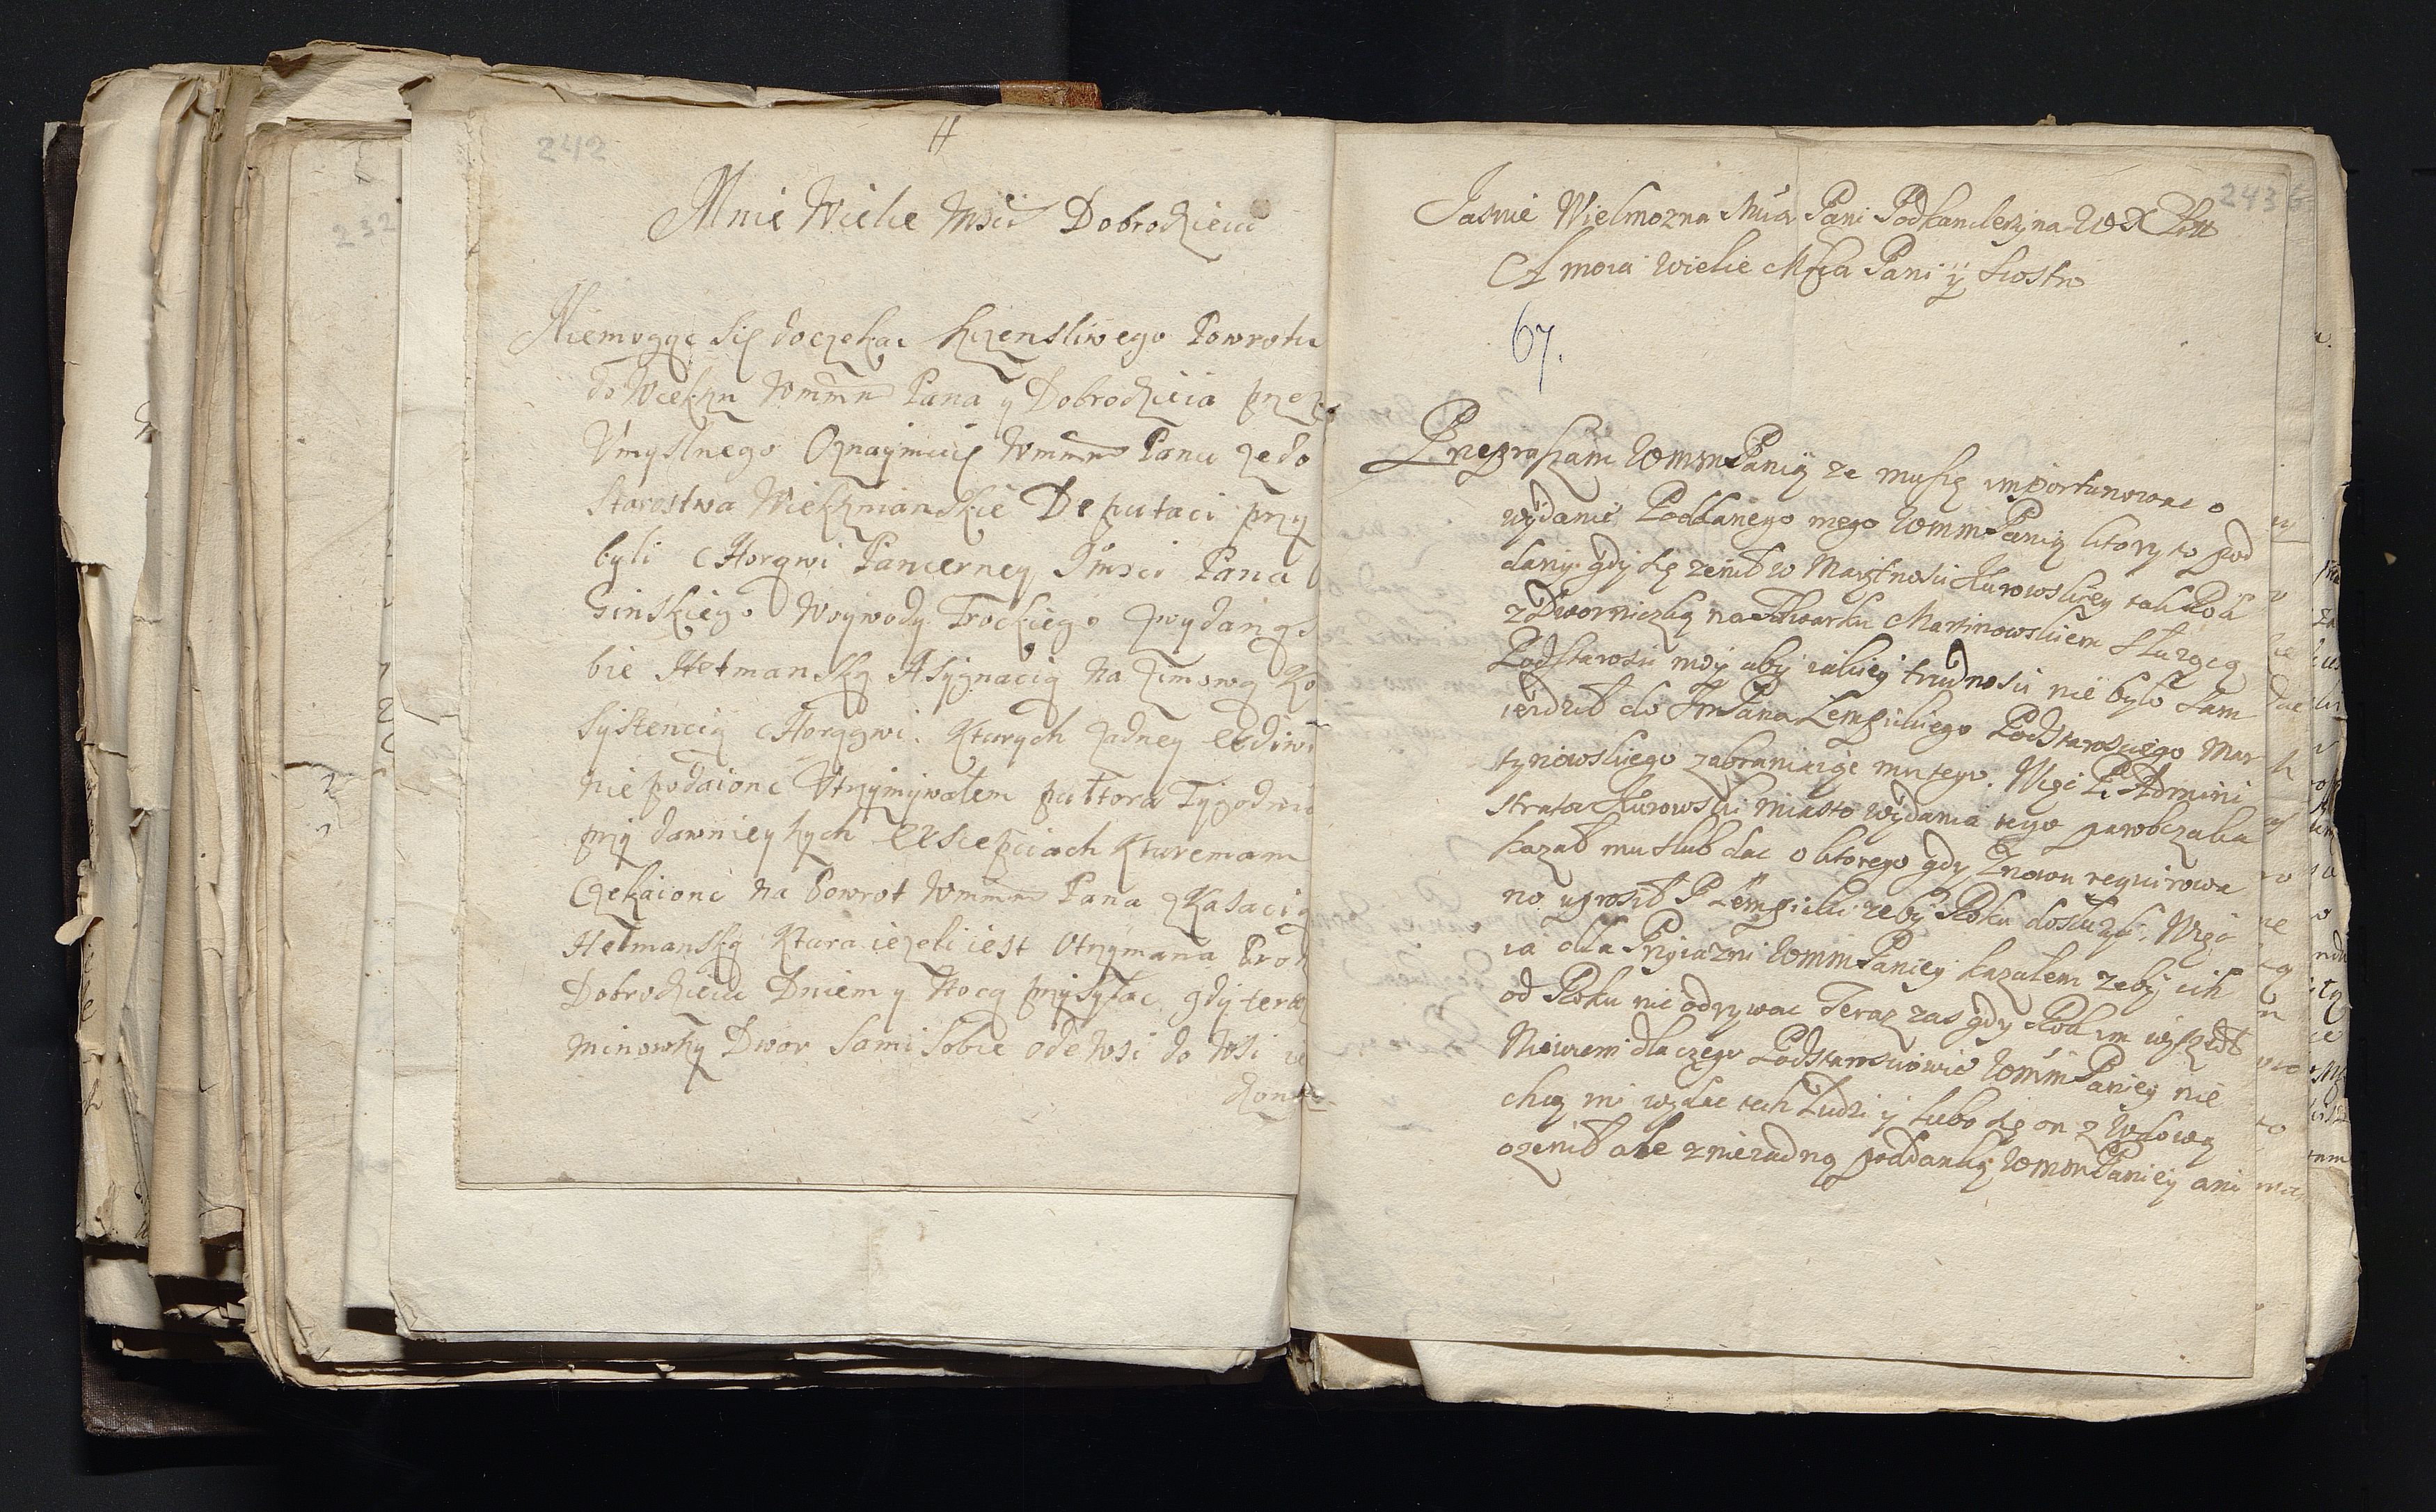 242
H
Mnie Wielce Msci Dobrodzieiu
Niemogąc się doczekac szczensliwego Powrotu
do Wiekszn Wmmm Pana y Dobrodzieia przez
Vmyslnego Oznaymuię Wmmm Panu ze do
Starostwa Wiekznianskie Deputaci przy
byli CHorągwi Pancerney Jmsci Pana
Ginskiego Woywody Trockiego zwydaną so
bie Hetmanską Asygnacią na zimową Ko
systencią CHorągwi. Kturych zadney
nie podaionc Vtrzymywałem pułtora Tygodnia
przy dawnieyszych exscepciach kturemam
Czekaionc na Powrot Wmmm Pana zKasacią
Hetmanską Ktura iezeli iest Otrzymana Prosz
Dobrodzieiu Dniem y Nocą przysyłac gdy teraz
minowszy Dwor Sami Sobie ode Wsi do Wsi
232
243
Jasnie Wielmozna Mcia Pani Podkanclerzyna WXLitt
A moia wielce Mscia Pani ÿ Siostro
67.
Przepraszam WmmPanią ze muszę importunowac o
wydanie Poddanego mego WmmPanią ktory to pod
dany gdy się zenił w Maiętnosci Kurowskiey tak Pod
z Dworniczką na Folwarku Martinowskiem słuzącą
Podstarosci moy aby iakiey trudnosci nie było sam
iezdził do JmPana Lempickiego Podstarosciego Mar
tynowskiego zabraniaiąc mu tego. Więc P. Admini
strator Kurowski miasto wydania tego parobczaka
kazał mu slub dac o ktorego gdy znowu requirowa
no uprosił P Lempicki zeby Roku dosłuzył. Więc
ia dla Przyiazni WmmPaniey kazałem zeby ich
od Roku nie odrywac Teraz zas gdy Rok im wyszedł
Niewiem dlaczego Podstarosciowie WmmPaniey nie
chcą mi wydac tych Ludzi y lubo się on z Wdową
ozenił ale z niezadną poddanką WmmPaniey ani